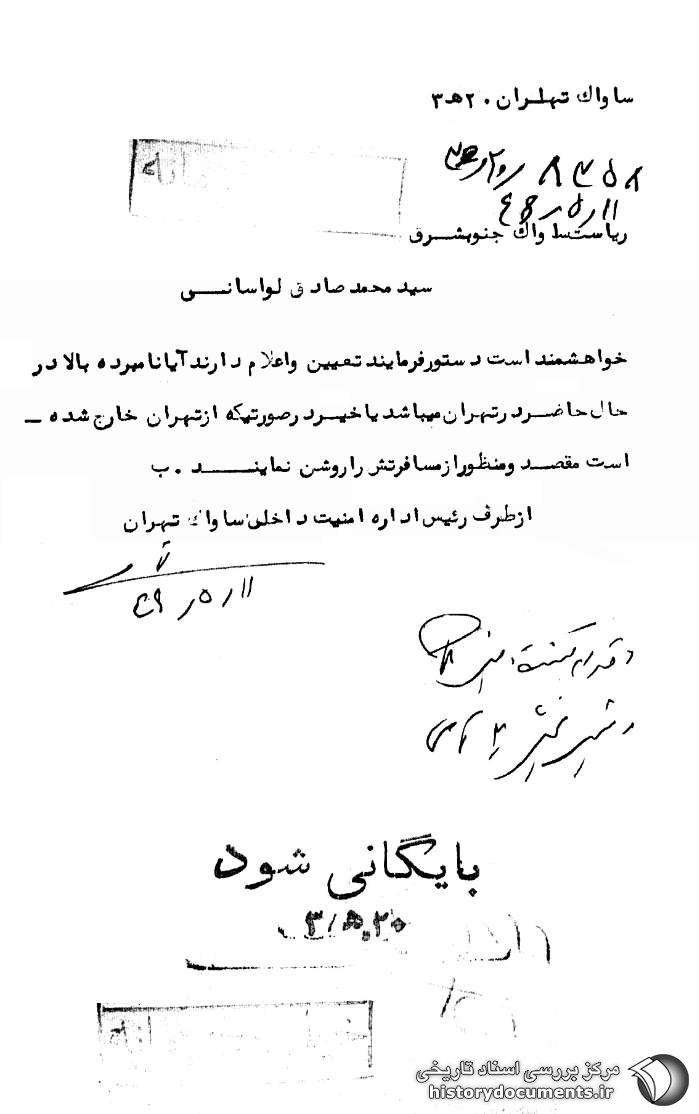 ساواك تهران ۲۰ هـ ۳
۸۳۵۸ / ۲۰ هـ ۳
۱۱ر۵ر۴۹
ریاست ساواك جنوبشرق
سید محمد صادق لواسانـــی
خواهشمند است دستور فرمایند تعیین و اعلام دارند آیا نامبرده بالا در
حال حاضر در تهران میباشد یا خیر در صورتیکه از تهران خارج شده ــ
است مقصد و منظور از مسافرتش را روشن نماینـــد . ب
از طرف رئیس اداره امنیت داخلی ساواك تهران
۱۱ر۵ر۴۹
بایگانی شود
۲۰.هـ/۳
مرکز بررسی اسناد تاریخی
historydocuments.ir